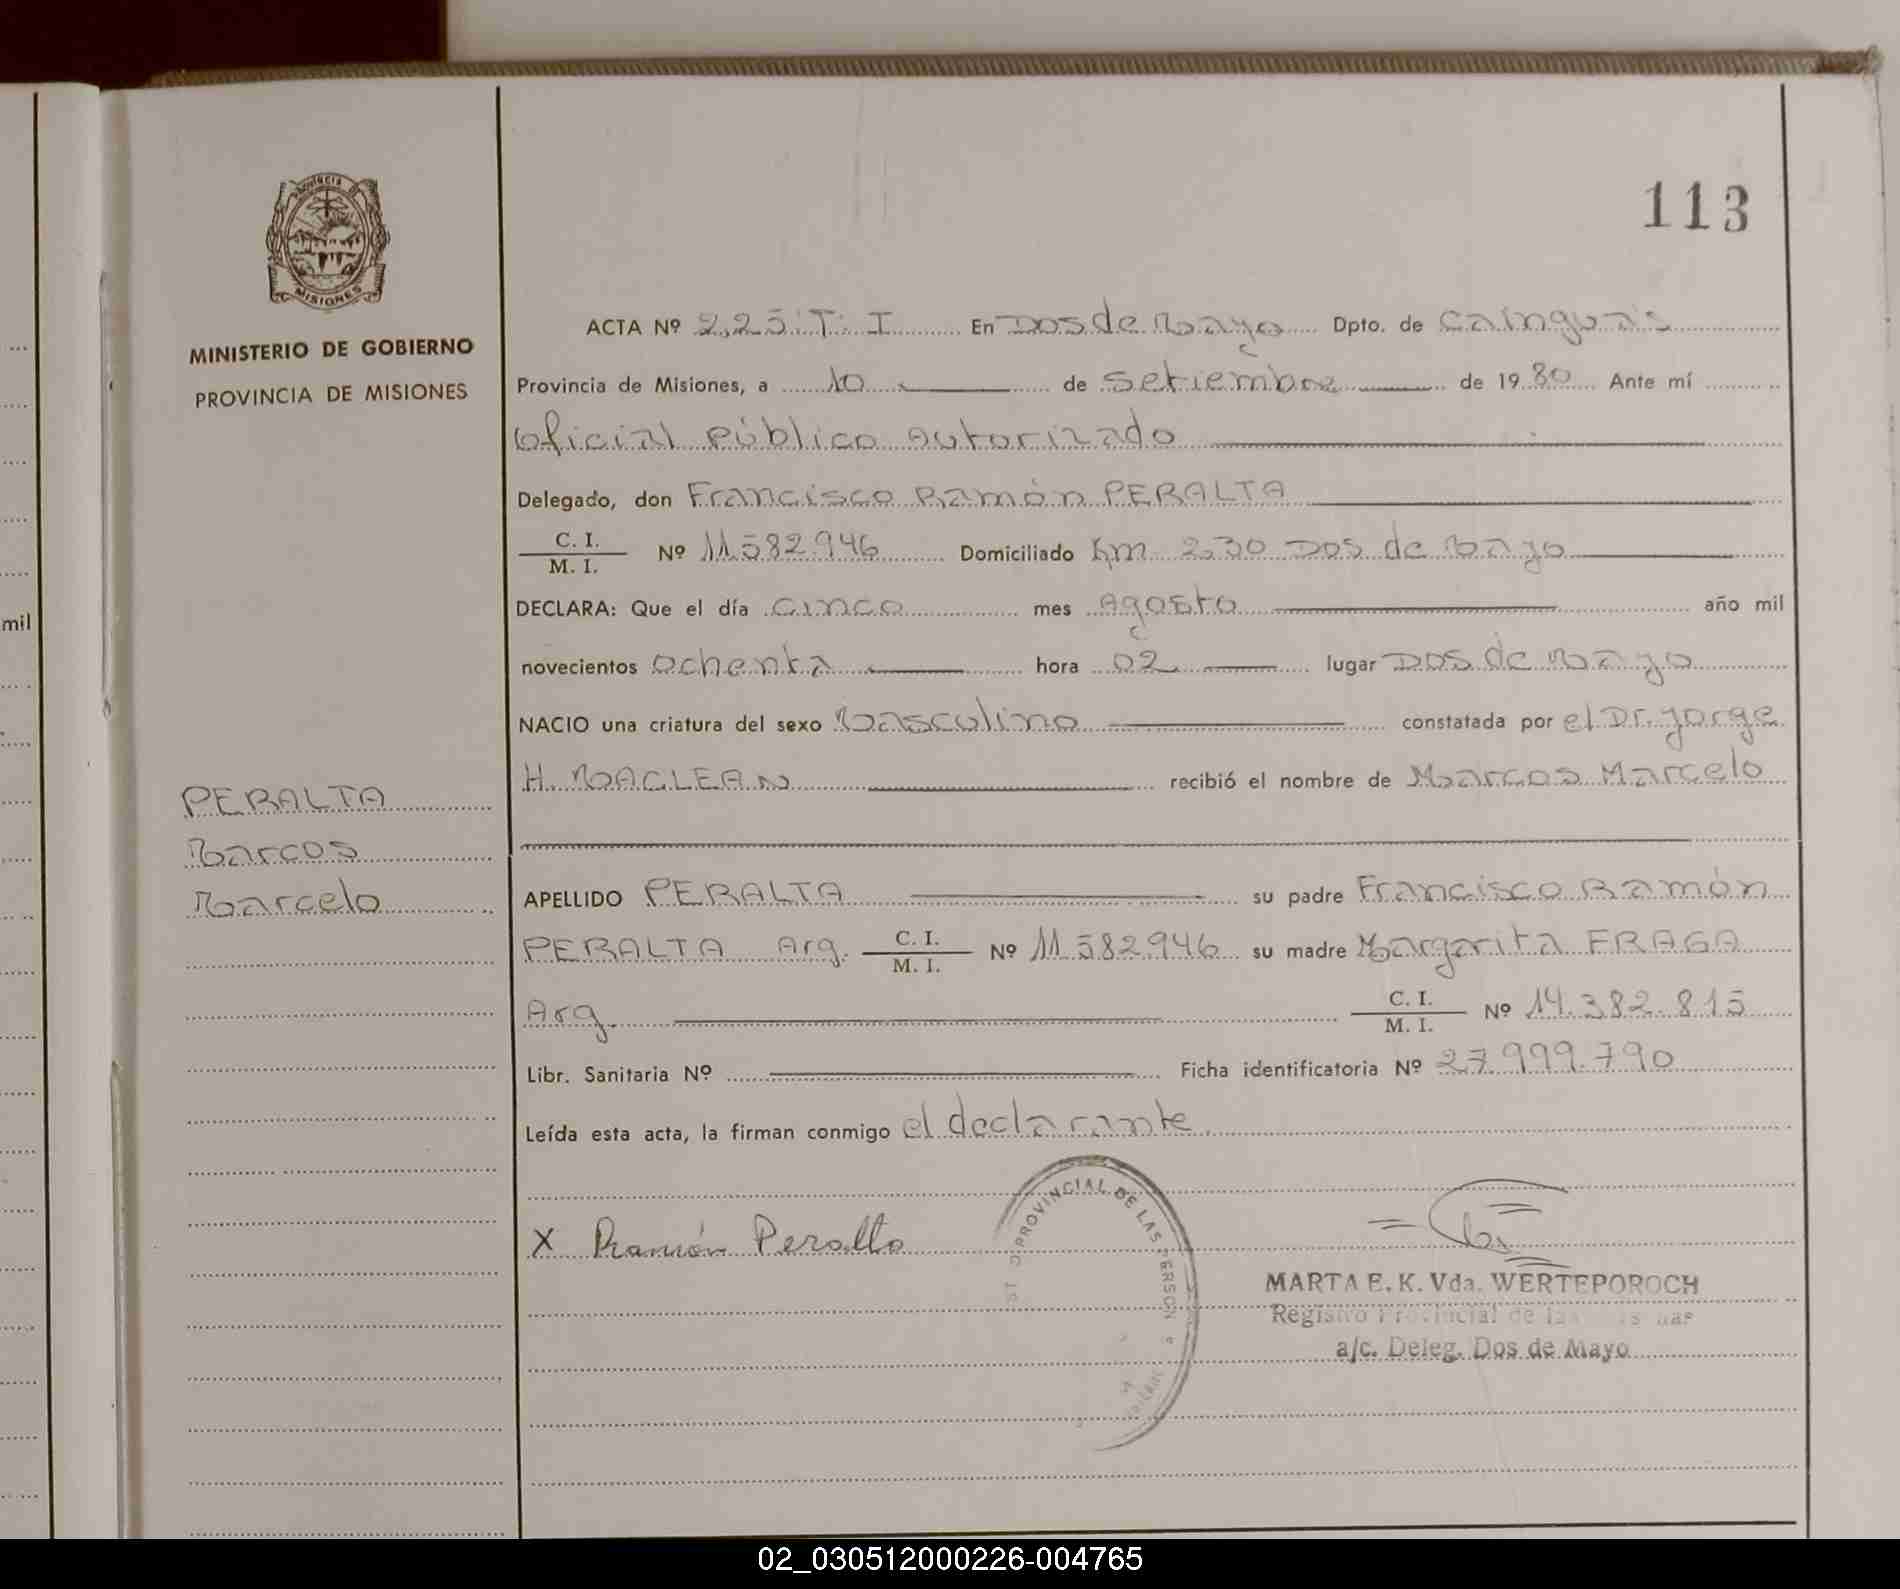 113
PROVINCIA DE
MISIONES
MINISTERIO DE GOBIERNO
PROVINCIA DE MISIONES
ACTA Nº 225 T: I En Dos de Mayo Dpto. de Cainguás
Provincia de Misiones, a 10 de setiembre de 1980 Ante mí
Oficial Público Autorizado
Delegado, don Francisco Ramón PERALTA
C. I.
M. I. Nº 11.582.946 Domiciliado Km 230 Dos de Mayo
DECLARA: Que el día cinco mes Agosto año mil
novecientos ochenta hora 02 lugar Dos de Mayo
NACIO una criatura del sexo Masculino constatada por el Dr. Jorge
H. MACLEAN recibió el nombre de Marcos Marcelo
PERALTA
Marcos
Marcelo
APELLIDO PERALTA su padre Francisco Ramón
PERALTA Arg. C. I.
M. I. Nº 11.582.946 su madre Margarita FRAGA
Arg. C. I.
M. I. Nº 14.382.815
Libr. Sanitaria Nº Ficha identificatoria Nº 27.999.790
Leída esta acta, la firman conmigo el declarante.
X Ramón Peralta
PROVINCIAL DE LAS PERSON
MARTA E. K. Vda. WERTEPOROCH
Registro Provincial de las
a/c. Deleg. Dos de Mayo
mil
02_030512000226-004765